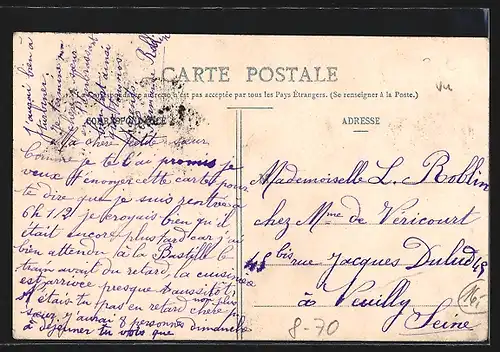 CARTE POSTALE
La Correspondance au recto n'est pas acceptée par tous les Pays Étrangers. (Se renseigner à la Poste.)
CORRESPONDANCE
ADRESSE
Ma chère petite sœur
Comme je te l'ai promis je
veux t'envoyer cette carte pour
te dire que je suis rentrée à
6h 1/2 je croyais bien qu'il
était encore plus tard car j'ai
bien attendu à la Bastille le
train avait du retard, la cuisinière
est arrivée presque aussitôt
N'étais tu pas en retard chère
non plus
sœur j'aurai 8 personnes dimanche
à déjeuner tu vois que
j'aurai bien à
Mademoiselle L. Roblin
chez Mme de Véricourt
45 bis rue Jacques Dulud 45
à Neuilly
Seine
8-70